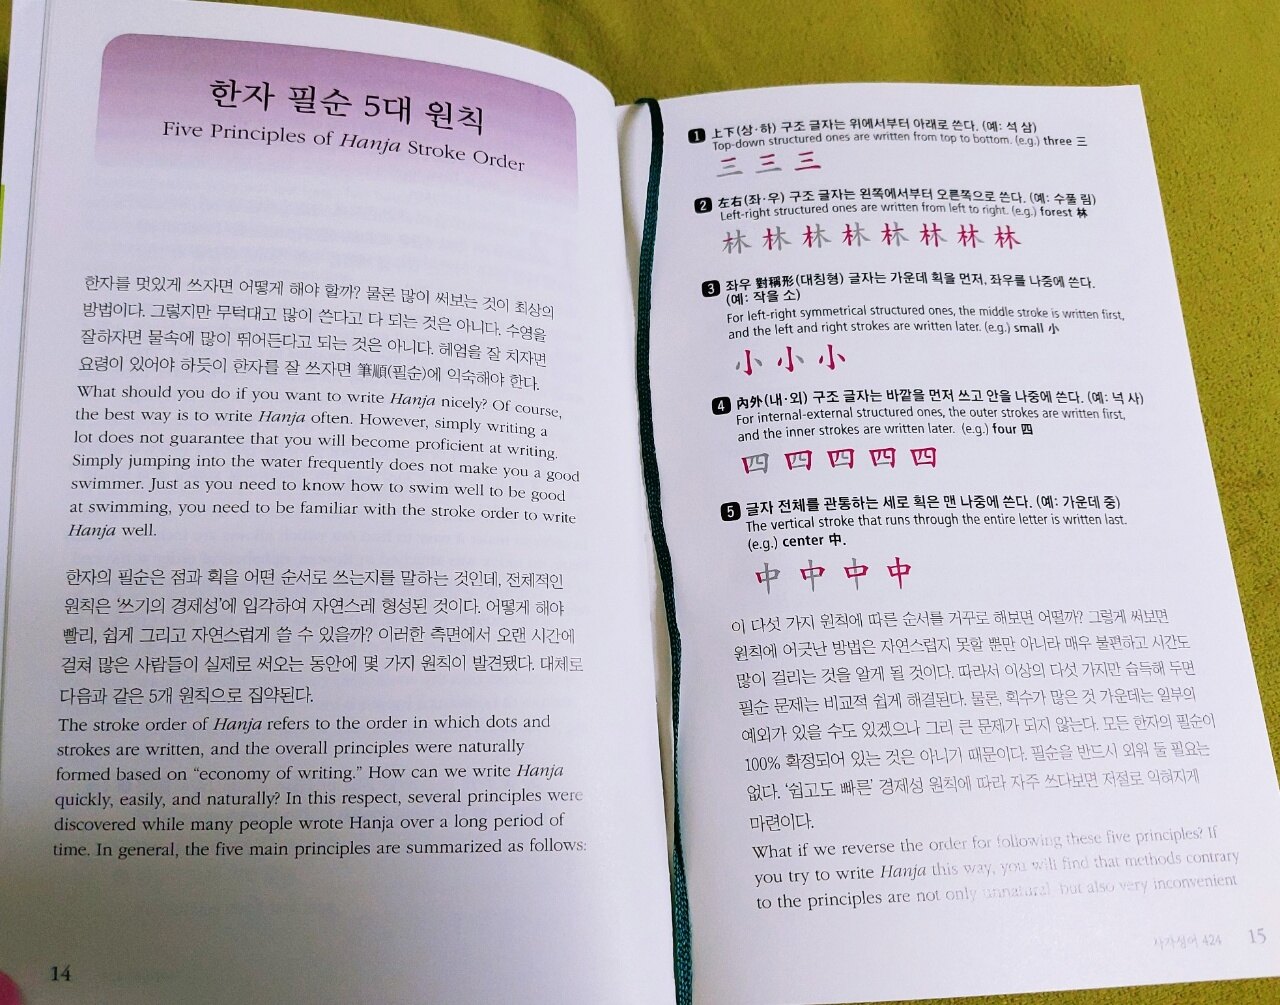 한자 필순 5대 원칙
Five Principles of Hanja Stroke Order
한자를 멋있게 쓰자면 어떻게 해야 할까? 물론 많이 써보는 것이 최상의
방법이다. 그렇지만 무턱대고 많이 쓴다고 다 되는 것은 아니다. 수영을
잘하자면 물속에 많이 뛰어든다고 되는 것은 아니다. 헤엄을 잘 치자면
요령이 있어야 하듯이 한자를 잘 쓰자면 筆順(필순)에 익숙해야 한다.
What should you do if you want to write Hanja nicely? Of course,
the best way is to write Hanja often. However, simply writing a
lot does not guarantee that you will become proficient at writing.
Simply jumping into the water frequently does not make you a good
swimmer. Just as you need to know how to swim well to be good
at swimming, you need to be familiar with the stroke order to write
Hanja well.
한자의 필순은 점과 획을 어떤 순서로 쓰는지를 말하는 것인데, 전체적인
원칙은 ‘쓰기의 경제성’에 입각하여 자연스레 형성된 것이다. 어떻게 해야
빨리, 쉽게 그리고 자연스럽게 쓸 수 있을까? 이러한 측면에서 오랜 시간에
걸쳐 많은 사람들이 실제로 써오는 동안에 몇 가지 원칙이 발견됐다. 대체로
다음과 같은 5개 원칙으로 집약된다.
The stroke order of Hanja refers to the order in which dots and
strokes are written, and the overall principles were naturally
formed based on “economy of writing.” How can we write Hanja
quickly, easily, and naturally? In this respect, several principles were
discovered while many people wrote Hanja over a long period of
time. In general, the five main principles are summarized as follows:
14
1 上下(상·하) 구조 글자는 위에서부터 아래로 쓴다. (예: 석 삼)
Top-down structured ones are written from top to bottom. (e.g.) three 三
三 三 三
2 左右(좌·우) 구조 글자는 왼쪽에서부터 오른쪽으로 쓴다. (예: 수풀 림)
Left-right structured ones are written from left to right. (e.g.) forest 林
林 林 林 林 林 林 林 林
3 좌우 對稱形(대칭형) 글자는 가운데 획을 먼저, 좌우를 나중에 쓴다.
(예: 작을 소)
For left-right symmetrical structured ones, the middle stroke is written first,
and the left and right strokes are written later. (e.g.) small 小
小 小 小
4 內外(내·외) 구조 글자는 바깥을 먼저 쓰고 안을 나중에 쓴다. (예: 넉 사)
For internal-external structured ones, the outer strokes are written first,
and the inner strokes are written later. (e.g.) four 四
四 四 四 四 四
5 글자 전체를 관통하는 세로 획은 맨 나중에 쓴다. (예: 가운데 중)
The vertical stroke that runs through the entire letter is written last.
(e.g.) center 中.
中 中 中 中
이 다섯 가지 원칙에 따른 순서를 거꾸로 해보면 어떨까? 그렇게 써보면
원칙에 어긋난 방법은 자연스럽지 못할 뿐만 아니라 매우 불편하고 시간도
많이 걸리는 것을 알게 될 것이다. 따라서 이상의 다섯 가지만 습득해 두면
필순 문제는 비교적 쉽게 해결된다. 물론, 획수가 많은 것 가운데는 일부의
예외가 있을 수도 있겠으나 그리 큰 문제가 되지 않는다. 모든 한자의 필순이
100% 확정되어 있는 것은 아니기 때문이다. 필순을 반드시 외워 둘 필요는
없다. ‘쉽고도 빠른’ 경제성 원칙에 따라 자주 쓰다보면 저절로 익혀지게
마련이다.
What if we reverse the order for following these five principles? If
you try to write Hanja this way, you will find that methods contrary
to the principles are not only unnatural, but also very inconvenient
사자성어 424 15